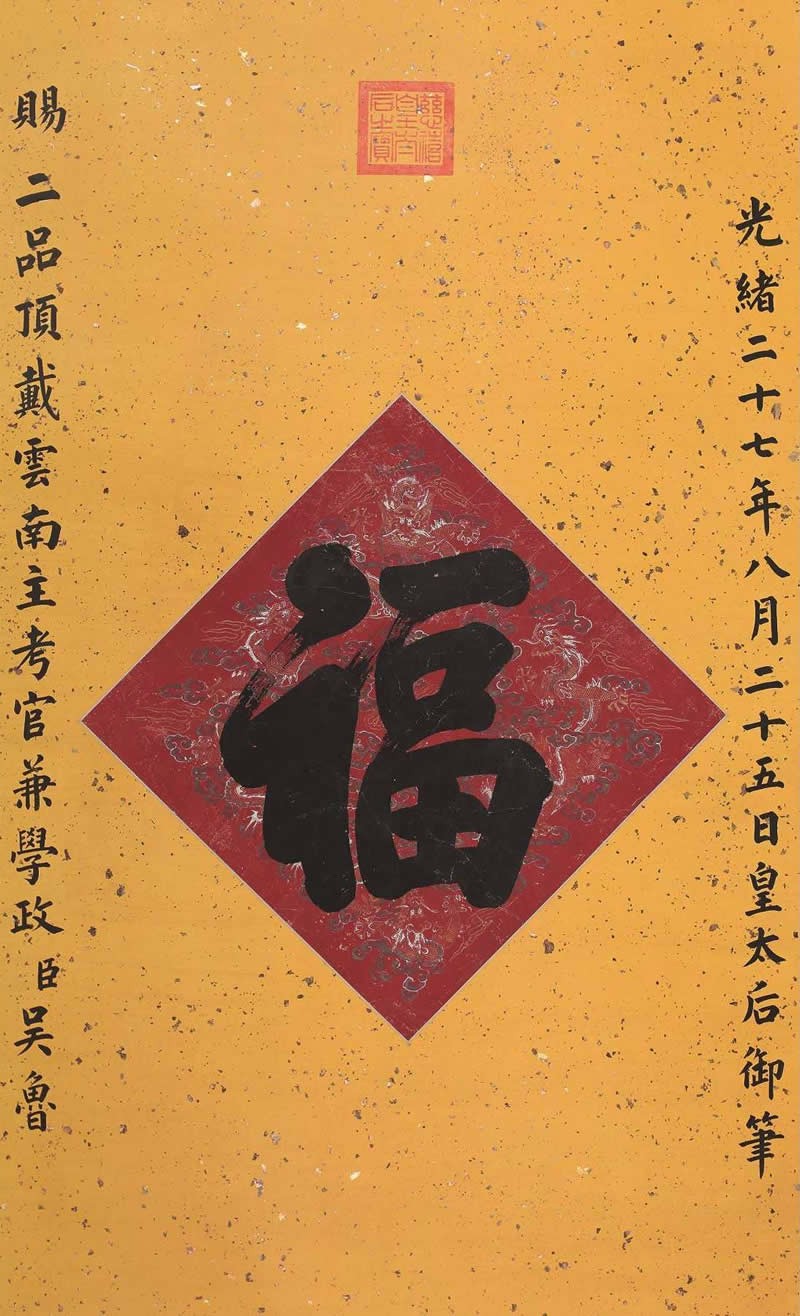 慈禧皇太后之寶
光緒二十七年八月二十五日皇太后御筆
福
賜二品頂戴雲南主考官兼學政臣吳魯